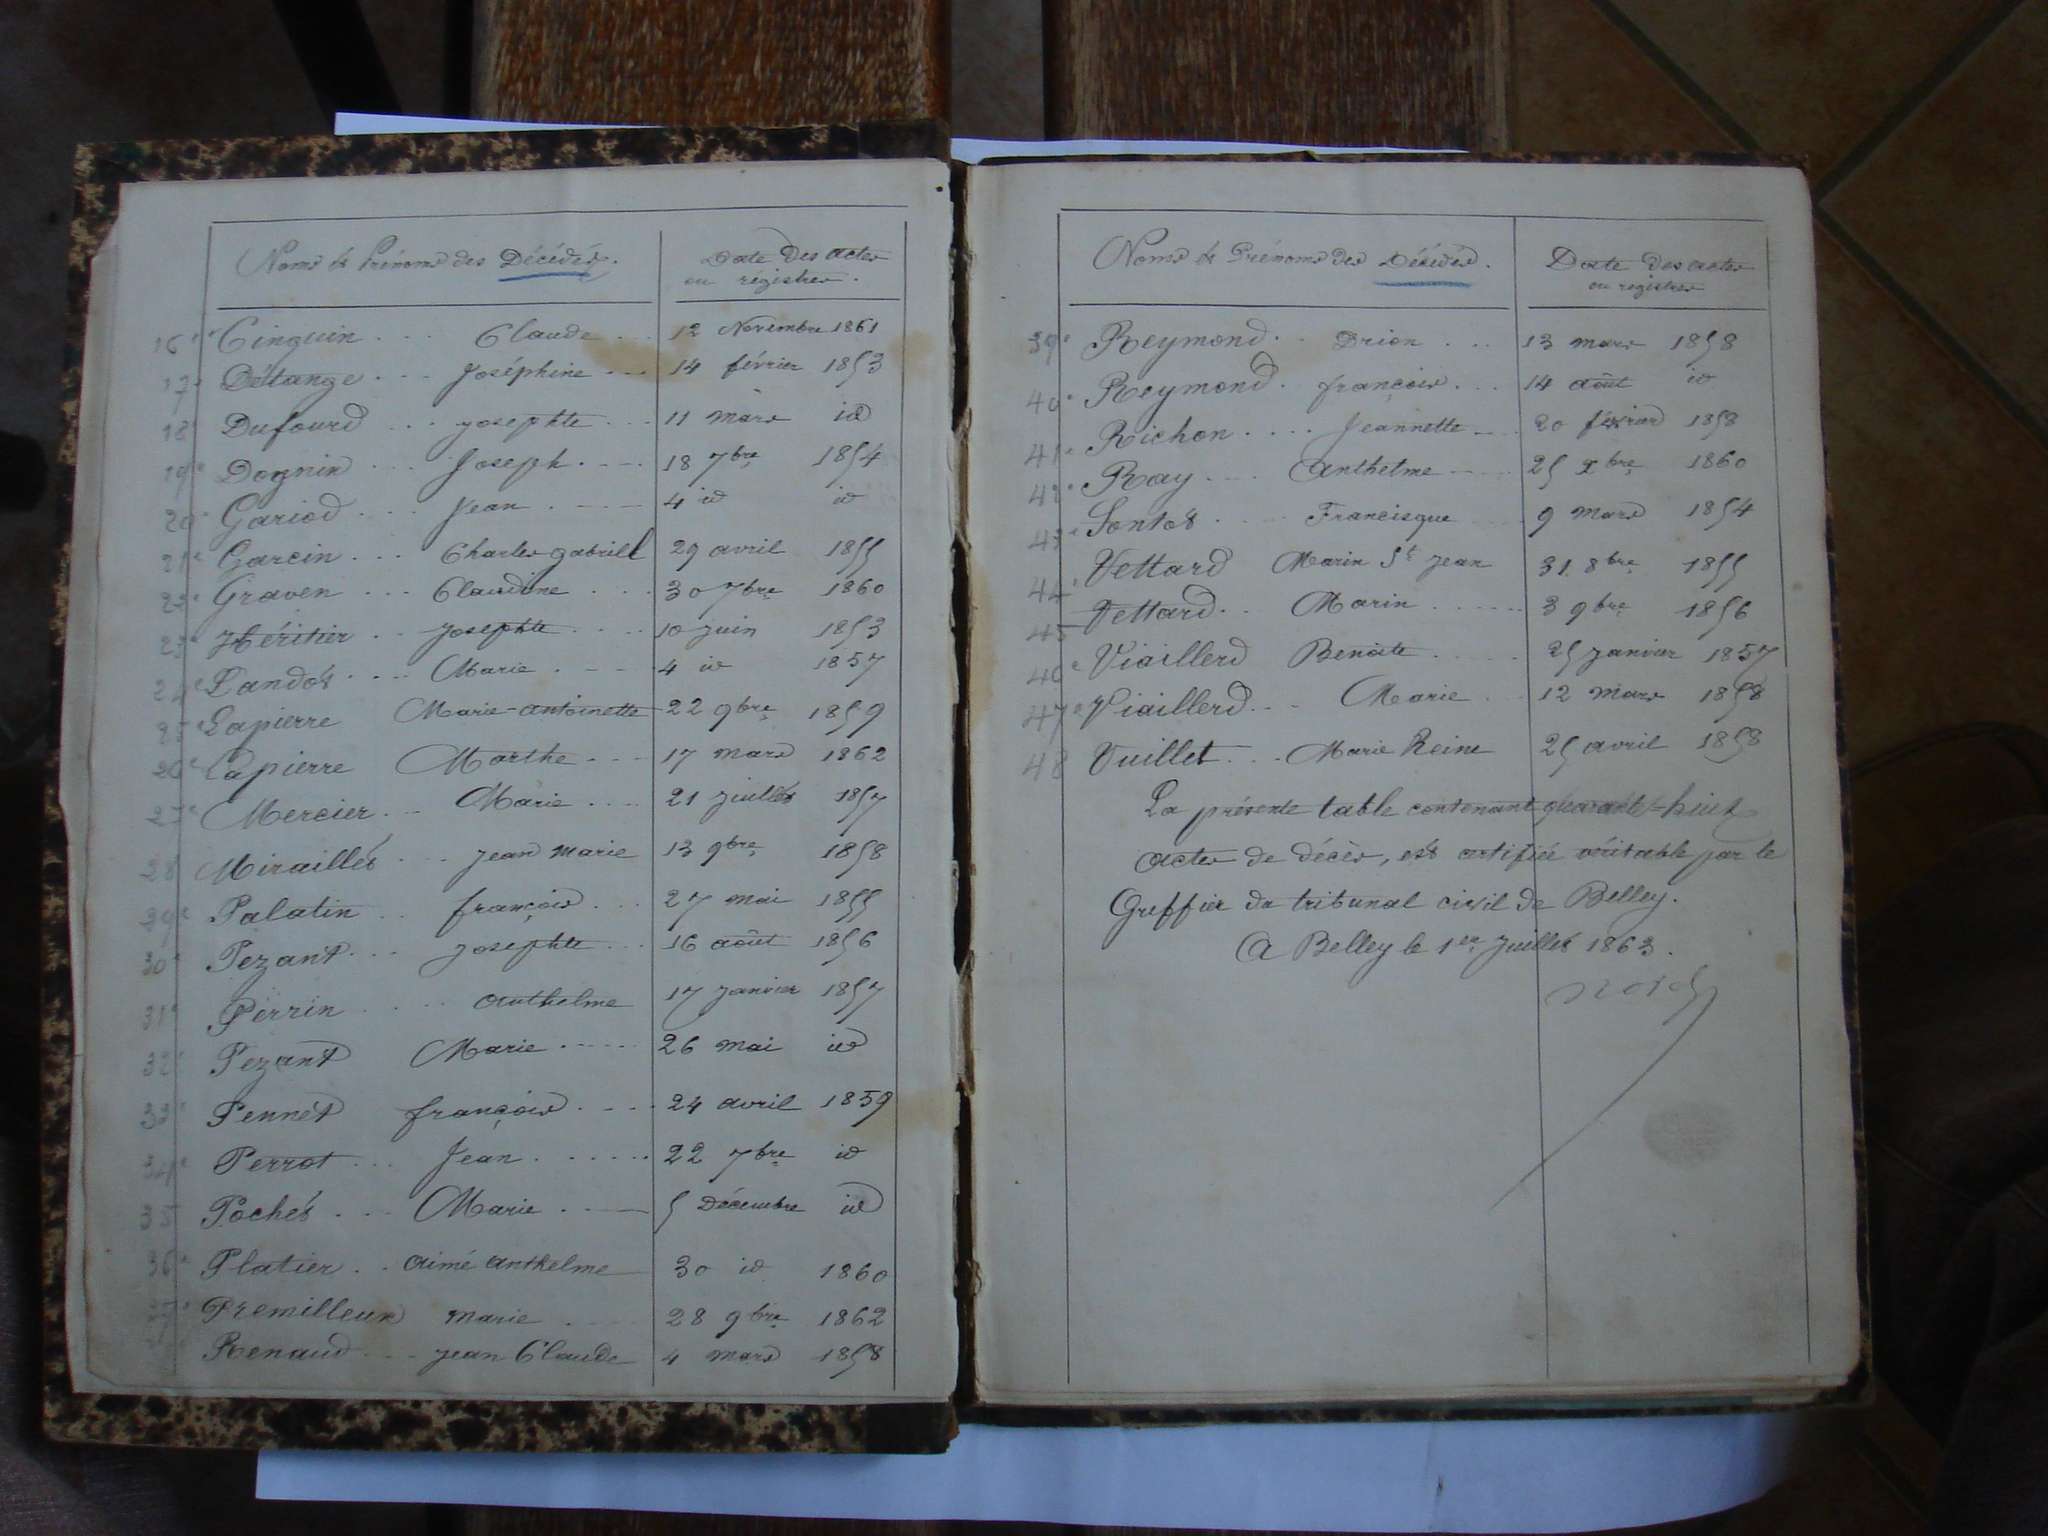 Noms & Prénoms des Décédés.
Date des actes
ou régistres.
16e Cinquin ... Claude ... 12 Novembre 1861
17e Délange ... Joséphine ... 14 février 1853
18e Dufourd ... Josephte ... 11 mars id
19e Dognin ... Joseph ... 18 7bre 1854
20e Gariod ... Jean ... 4 id id
21e Garcin ... Charles gabriell 29 avril 1855
22e Graven ... Claudine ... 30 7bre 1860
23e Héritier .. Josephte ... 10 juin 1853
24e Landot ... Marie ... 4 id 1857
25e Lapierre Marie-antoinette 22 9bre 1859
26e Lapierre Marthe ... 17 mars 1862
27e Mercier ... Marie ... 21 juillet 1857
28e Miraillet ... Jean Marie 13 9bre 1858
29e Palatin .. françois ... 27 mai 1855
30e Pezant ... Josephte ... 16 août 1856
31e Perrin ... anthelme 17 janvier 1857
32e Pezant Marie ... 26 mai id
33e Pennet françois ... 24 avril 1859
34e Perrot ... Jean ... 22 7bre id
35 Pochet ... Marie ... 5 Décembre id
36e Platier .. aimé anthelme 30 id 1860
Premilleux marie ... 28 9bre 1862
Renaud ... Jean Claude 4 mars 1858
Noms & Prénoms des Décédés.
Date des actes
ou registres
39e Reymond .. Drion ... 13 mars 1858
40e Reymond . françois ... 14 août id
41e Richon .... Jeannette ... 20 février 1858
42e Ray ... anthelme ... 25 xbre 1860
43e Francisque ... 9 mars 1854
44e Vettard Marin St Jean 31 8bre 1855
45 Vettard .. Marin ... 3 9bre 1856
46e Viaillerd Benoîte ... 25 janvier 1857
47e Viaillerd ... Marie ... 12 mars 1858
48 Vuillet ... Marie Reine 25 avril 1858
La présente table contenant quarante-huit
actes de décès, est certifiée véritable par le
Greffier du tribunal civil de Belley.
A Belley le 1er Juillet 1863.